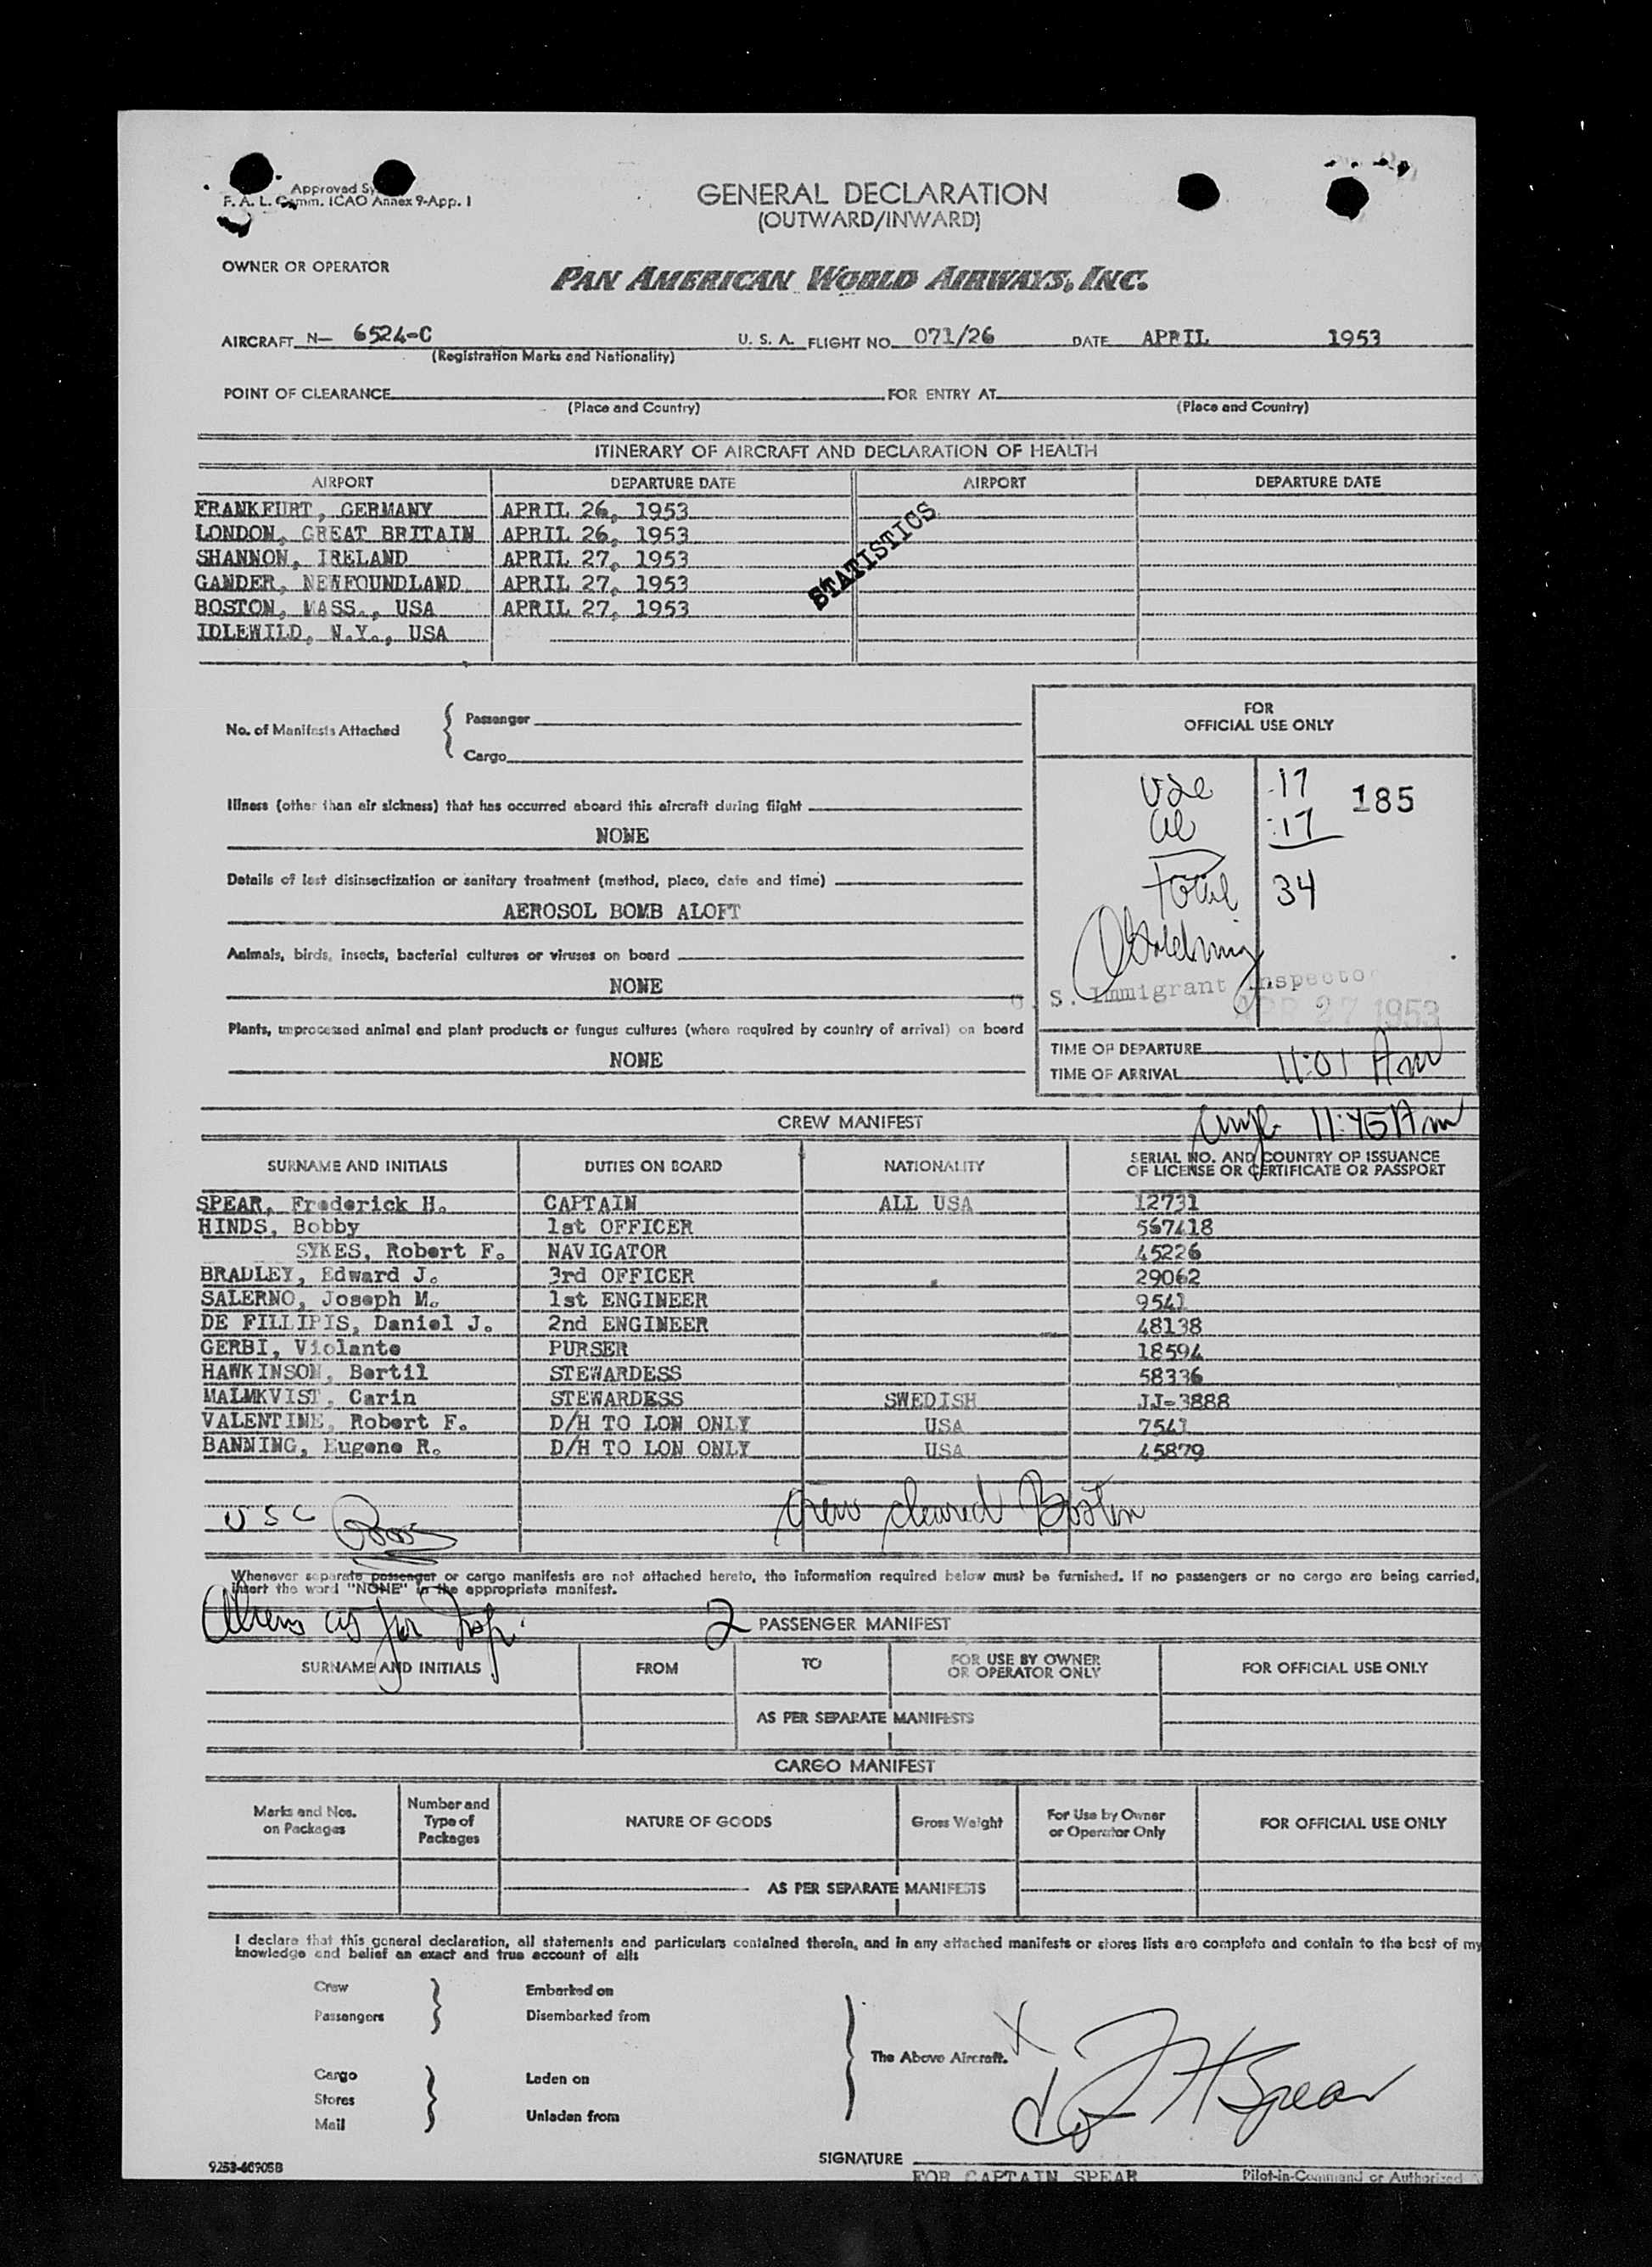 Approved Sy
F. A. L. Comm. ICAO Annex 9-App. 1
GENERAL DECLARATION
(OUTWARD/INWARD)
OWNER OR OPERATOR
PAN AMERICAN WORLD AIRWAYS, INC.
AIRCRAFT N- 6524-C U. S. A. FLIGHT NO. 071/26 DATE APRIL 1953
(Registration Marks and Nationality)
POINT OF CLEARANCE FOR ENTRY AT
(Place and Country) (Place and Country)
ITINERARY OF AIRCRAFT AND DECLARATION OF HEALTH
AIRPORT DEPARTURE DATE AIRPORT DEPARTURE DATE
FRANKFURT, GERMANY APRIL 26, 1953
LONDON, GREAT BRITAIN APRIL 26, 1953
SHANNON, IRELAND APRIL 27, 1953
GANDER, NEWFOUNDLAND APRIL 27, 1953
BOSTON, MASS., USA APRIL 27, 1953
IDLEWILD, N.Y., USA
STATISTICS
No. of Manifests Attached
Passenger
Cargo
FOR
OFFICIAL USE ONLY
17 185
17
Total 34
U. S. Immigrant Inspector
APR 27 1953
Illness (other than air sickness) that has occurred aboard this aircraft during flight
NONE
Details of last disinsectization or sanitary treatment (method, place, date and time)
AEROSOL BOMB ALOFT
Animals, birds, insects, bacterial cultures or viruses on board
NONE
Plants, unprocessed animal and plant products or fungus cultures (where required by country of arrival) on board
NONE
TIME OF DEPARTURE
TIME OF ARRIVAL 11:01 AM
11:45 AM
CREW MANIFEST
SURNAME AND INITIALS DUTIES ON BOARD NATIONALITY SERIAL NO. AND COUNTRY OF ISSUANCE
OF LICENSE OR CERTIFICATE OR PASSPORT
SPEAR, Frederick H. CAPTAIN ALL USA 12731
HINDS, Bobby 1st OFFICER 567418
SYKES, Robert F. NAVIGATOR 45226
BRADLEY, Edward J. 3rd OFFICER 29062
SALERNO, Joseph M. 1st ENGINEER 9541
DE FILLIPIS, Daniel J. 2nd ENGINEER 48138
GERBI, Violante PURSER 18594
HAWKINSON, Bertil STEWARDESS 58336
MALMKVIST, Carin STEWARDESS SWEDISH JJ-3888
VALENTINE, Robert F. D/H TO LON ONLY USA 7541
BANNING, Eugene R. D/H TO LON ONLY USA 45879
USC Crew cleared Boston
Whenever separate passenger or cargo manifests are not attached hereto, the information required below must be furnished. If no passengers or no cargo are being carried,
insert the word "NONE" in the appropriate manifest.
2 PASSENGER MANIFEST
SURNAME AND INITIALS FROM TO FOR USE BY OWNER
OR OPERATOR ONLY FOR OFFICIAL USE ONLY
AS PER SEPARATE MANIFESTS
CARGO MANIFEST
Marks and Nos.
on Packages
Number and
Type of
Packages
NATURE OF GOODS Gross Weight
For Use by Owner
or Operator Only
FOR OFFICIAL USE ONLY
AS PER SEPARATE MANIFESTS
I declare that this general declaration, all statements and particulars contained therein, and in any attached manifests or stores lists are complete and contain to the best of my
knowledge and belief an exact and true account of all:
Crew Embarked on
Passengers Disembarked from
The Above Aircraft.
Cargo Laden on
Stores
Mail Unladen from
X F H Spear
SIGNATURE
FOR CAPTAIN SPEAR Pilot-in-Command or Authorized
9253-46905B